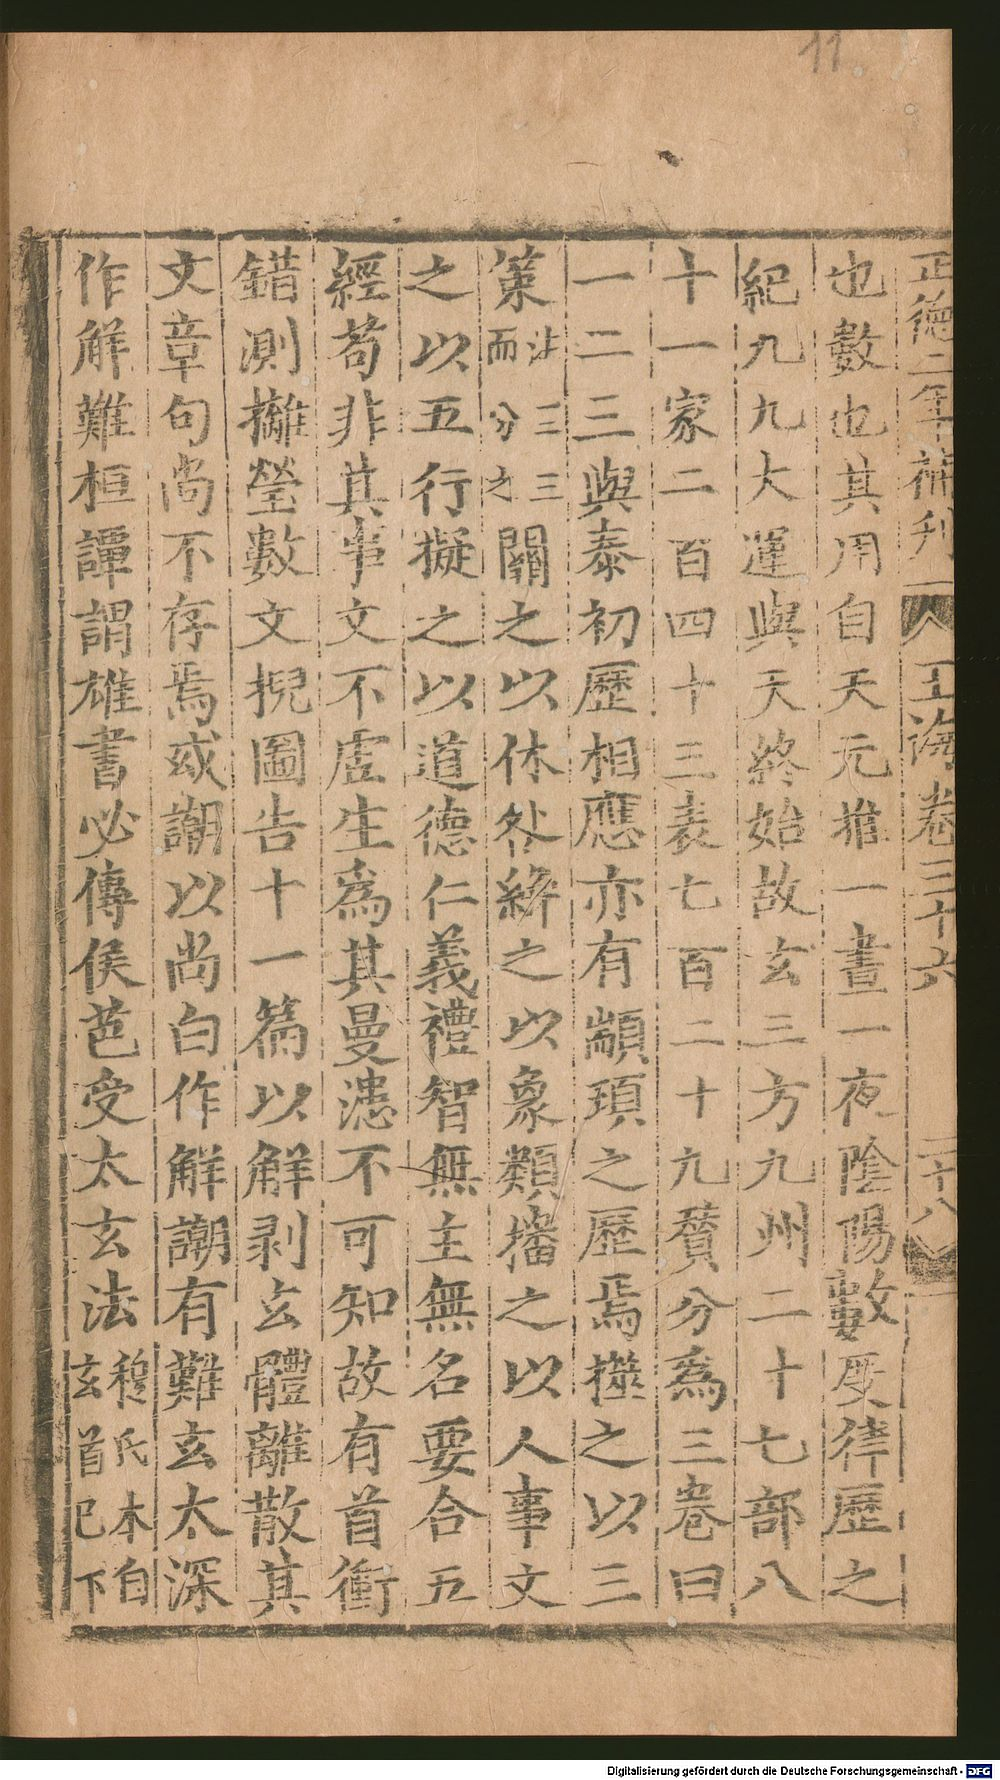 11
正德二年補刋 玉海卷三十六 二十八
也數也其用自天元推一晝一夜陰陽數度律歷之
紀九九大運與天終始故玄三方九州二十七部八
十一家二百四十三表七百二十九贊分為三卷曰
一二三與泰初歷相應亦有顓頊之歷焉揲之以三
策而分之法三三關之以休咎絣之以象類播之以人事文
之以五行擬之以道德仁義禮智無主無名要合五
經苟非其事文不虛生為其曼漶不可知故有首衝
錯測攡瑩數文掜圖告十一篇以解剥玄體離散其
文章句尚不存焉或謿以尚白作解謿有難玄太深
作解難桓譚謂雄書必傳侯芭受太玄法穆氏本自玄首已下
Digitalisierung gefördert durch die Deutsche Forschungsgemeinschaft - DFG